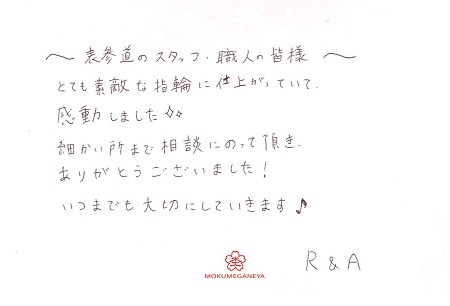 〜 表参道のスタッフ・職人の皆様 〜
とても素敵な指輪に仕上がっていて、
感動しました✧✧
細かい所まで相談にのって頂き、
ありがとうございました！
いつまでも大切にしていきます♪
MOKUMEGANEYA
R & A